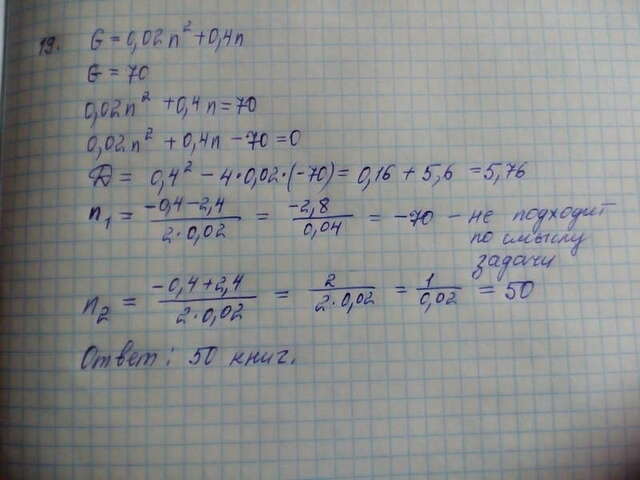 19. G = 0,02n² + 0,4n
G = 70
0,02n² + 0,4n = 70
0,02n² + 0,4n - 70 = 0
D = 0,4² - 4·0,02·(-70) = 0,16 + 5,6 = 5,76
n₁ = (-0,4-2,4)/(2·0,02) = (-2,8)/(0,04) = -70 - не подходит
по смыслу
задачи
n₂ = (-0,4+2,4)/(2·0,02) = 2/(2·0,02) = 1/(0,02) = 50
Ответ: 50 книг.